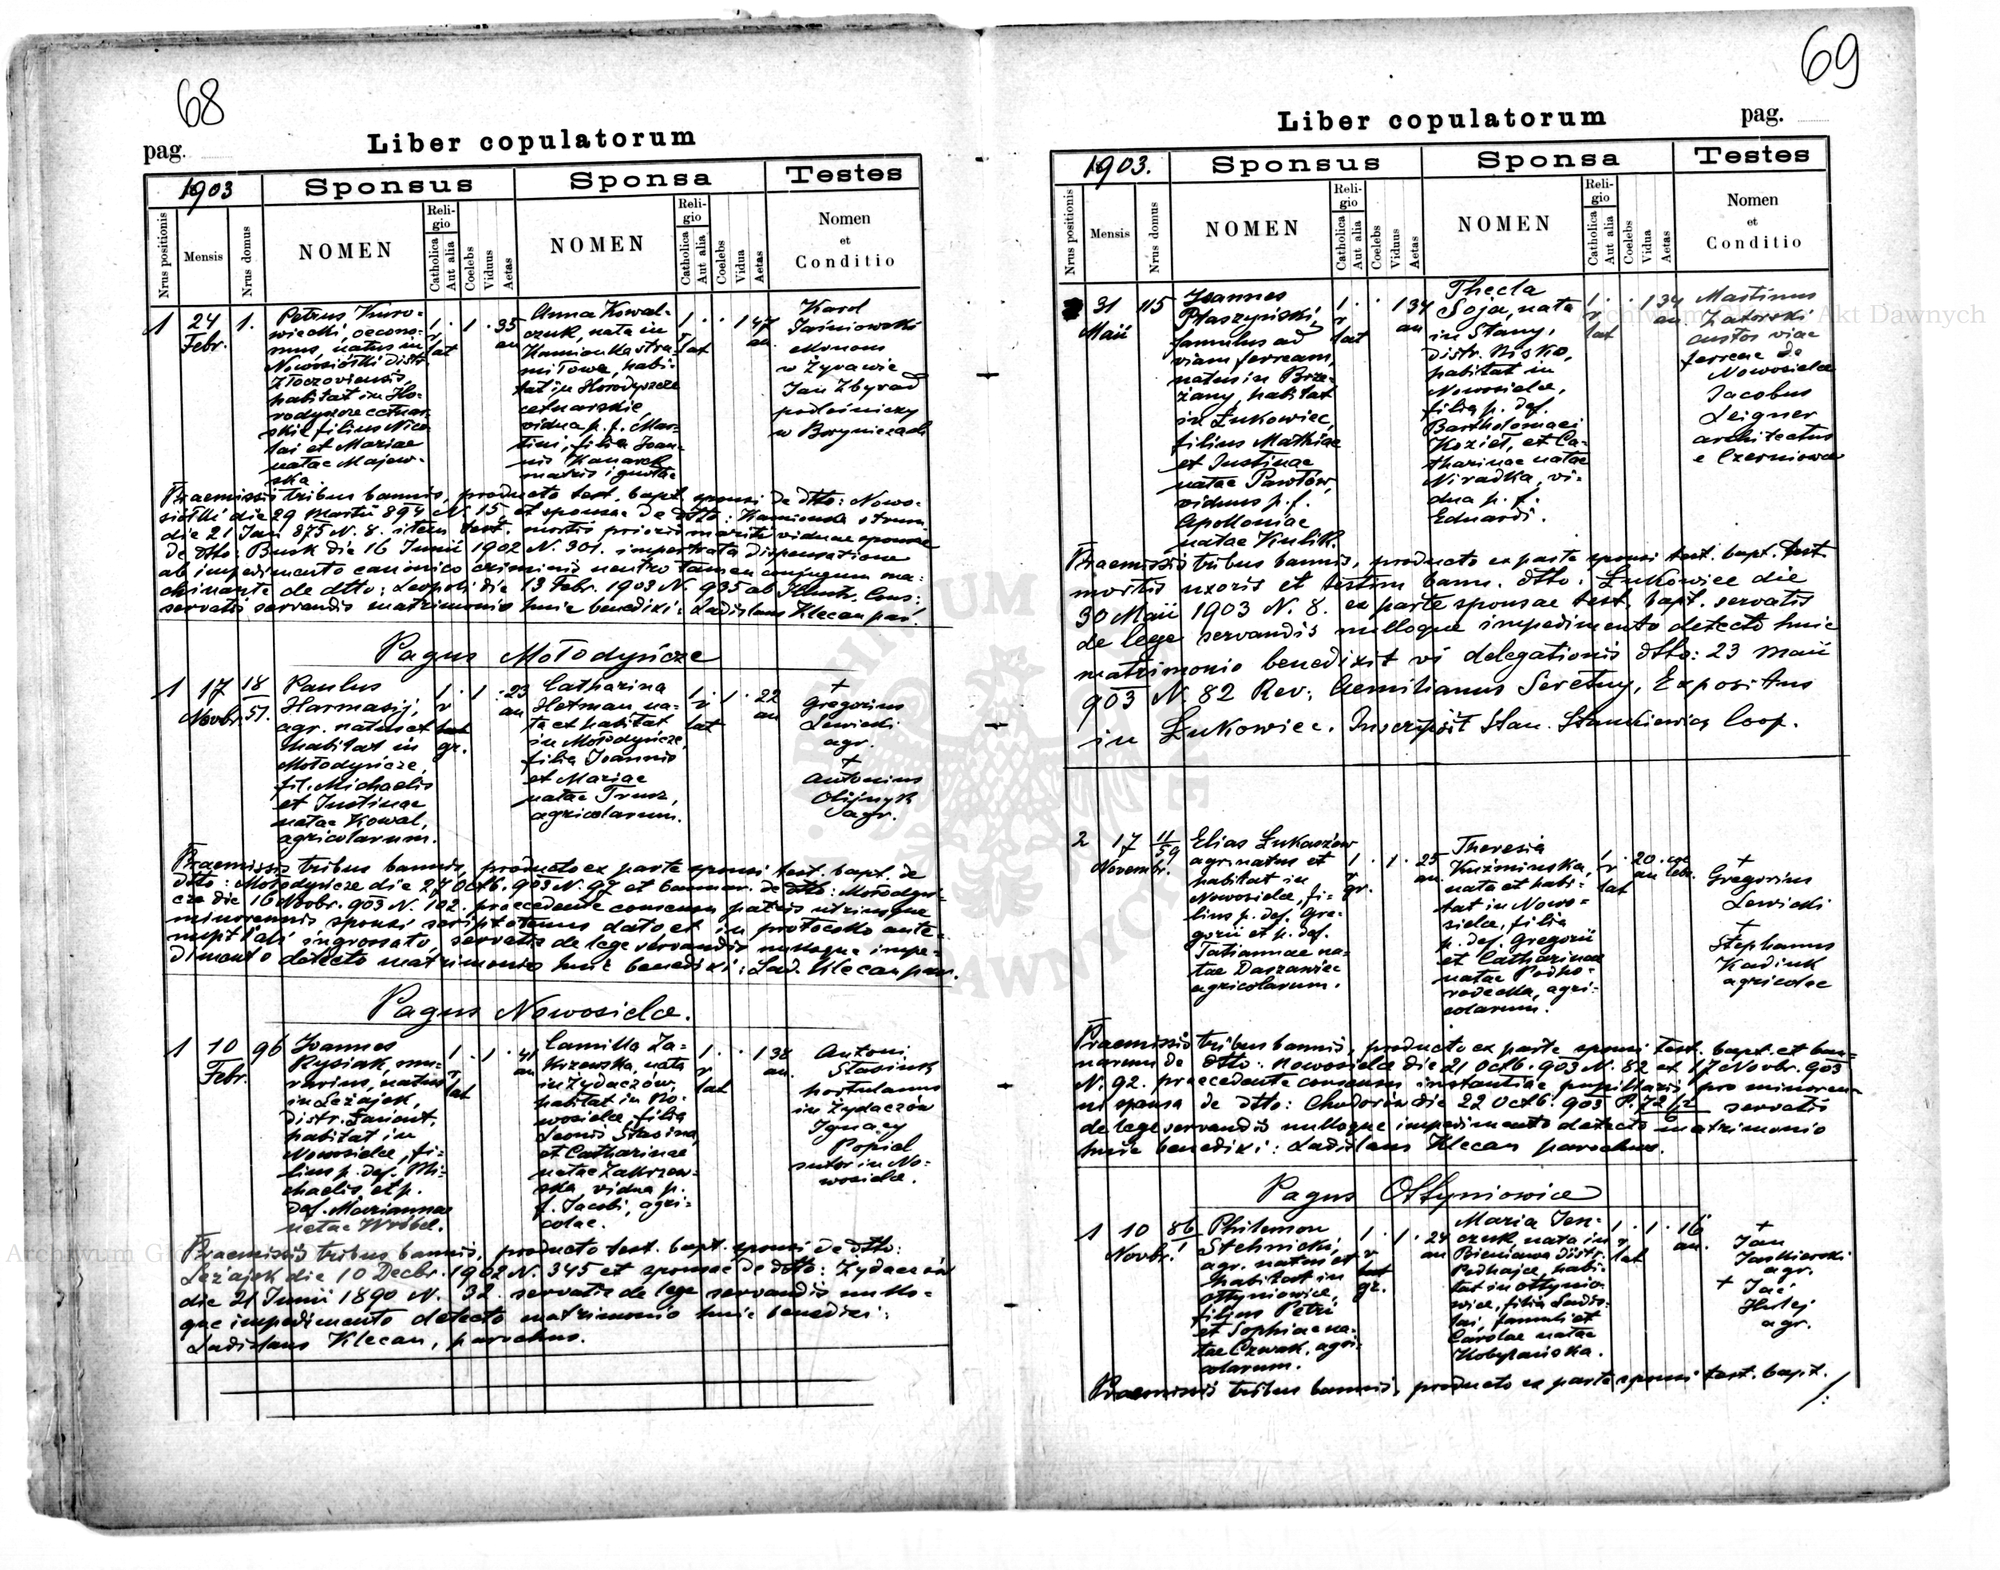 68
pag.
Liber copulatorum
1903
Sponsus
Sponsa
Testes
Nrus positionis
Mensis
Nrus domus
NOMEN
Religio
Catholica
Aut alia
Coelebs
Viduus
Aetas
NOMEN
Religio
Catholica
Aut alia
Coelebs
Vidua
Aetas
Nomen
et
Conditio
1
24
Febr.
1.
Petrus Kuro-
wiecki, oecono-
mus, natus in
Nowosiółki distr.
Złoczoviensis,
habitat in Ho-
rodyszcze cetnar-
skie filius Nico-
lai et Mariae
natae Majew-
ska.
1
r.
lat
1
35
an
Anna Kowal-
czuk, nata in
Kamionka stru-
miłowa, habi-
tat in Horodyszcze
cetnarskie,
vidua p. f. Mar-
tini, filia Joan-
nis Kanarek
matris ignotae
1
r.
lat
1
47
an.
Karol
Jaśniowski
ekonom
w Żyrawie
Jan Zbyrad
podleśniczy
w Boryniczach
Praemissis tribus bannis, producto test. bapt. sponsi de dtto: Nowo-
siółki die 29 Martii 894 N. 15 et sponsae de dtto: Kamionka strum.
die 21 Jan 875 N. 8. item test. mortis prioris mariti viduae sponsae
de dtto: Busk die 16 Junii 1902 N. 301. impertrata dispensatione
ab impedimento canonico criminis neutro tamen conjugum ma-
chinante de dtto: Leopoli die 13 Febr. 1903 N. 935 ab Illustr. Cons:
servatis servandis matrimonio huic benedixi: Ladislaus Klecan par.
Pagus Mołodyńcze
1
17
Novbr.
18
51.
Paulus
Harmasij,
agr. natus et
habitat in
Mołodyńcze,
fil. Michaelis
et Justinae
natae Kowal,
agricolarum.
1
r
lat
gr.
1
23
an
Catharina
Hetman na-
ta et habitat
in Mołodyńcze,
filia Joannis
et Mariae
natae Trusz,
agricolarum.
1
r
lat
1
22
an
+
Gregorius
Lewicki
agr.
+
Antonius
Olijnyk
agr.
Praemissis tribus bannis, producto ex parte sponsi test. bapt. de
dtto: Mołodyńcze die 27 Octb. 903 N. 97 et bannor. de dtto: Mołodyń-
cze die 16 Novbr. 903 N. 102. praecedente consensu patris utriusque
minorennis sponsi scriptotenus dato et in protocollo ante-
nuptiali ingrossato, servatis de lege servandis nulloque impe-
dimento detecto matrimonio huic benedixi: Lad. Klecan par.
Pagus Nowosielce.
1
10
Febr.
96
Joannes
Rysiak, mu-
rarius, natus
in Leżajsk,
distr. Łańcut,
habitat in
Nowosielce, fi-
lius p. def. Mi-
chaelis et p.
def. Mariannae
natae Wróbel.
1
r.
lat
1
41
an
Camilla Za-
krzewska, nata
in Żydaczów,
habitat in No-
wosielce, filia
Leonis Stasina
et Catharinae
natae Zakrzew-
ska vidua p.
f. Jacobi, agri-
colae.
1
r
lat
1
38
an.
Antoni
Stasiuk
portulanus
in Żydaczów
Ignacy
Popiel
sutor in No-
wosielce.
Praemissis tribus bannis, producto test. bapt. sponsi de dtto:
Leżajsk die 10 Decbr. 1902 N. 345 et sponsae de dtto: Żydaczów
die 21 Junii 1890 N. 32. servatis de lege servandis nullo-
que impedimento detecto matrimonio huic benedixi:
Ladislaus Klecan, parochus.
69
Liber copulatorum
pag.
1903.
Sponsus
Sponsa
Testes
Nrus positionis
Mensis
Nrus domus
NOMEN
Religio
Catholica
Aut alia
Coelebs
Viduus
Aetas
NOMEN
Religio
Catholica
Aut alia
Coelebs
Vidua
Aetas
Nomen
et
Conditio
31
Maii
115
Joannes
Ptaszyński,
famulus ad
viam ferream,
natus in Brze-
żany, habitat
in Łukowiec,
filius Mathiae
et Justinae
natae Pawłów,
viduus p. f.
Apolloniae
natae Kulik.
1
r
lat
1
34
an
Thecla
Soja, nata
in Stany,
distr. Nisko,
habitat in
Nowosielce,
filia p. def.
Bartholomaei
Kozieł, et Ca-
tharinae natae
Niradka, vi-
dua p. f.
Eduardi.
1
r
lat
1
34
an
Martinus
Zatorski
custos viae
ferreae de
Nowosielce
Jacobus
Leigner
architectus
e Czerniowce
Praemissis tribus bannis, producto ex parte sponsi test. bapt. test.
mortis uxoris et testim bann. dtto: Łukowiec die
30 Maii 1903 N. 8. ex parte sponsae test. bapt. servatis
de lege servandis nulloque impedimento detecto huic
matrimonio benedixit vi delegationis dtto: 23 Maii
903 N. 82 Rev: Aemilianus Seretny, Expositus
in Łukowiec. Inscripsit Stan. Stankiewicz Coop.
2
17
Novembr.
11
59
Elias Łukaszów
agr. natus et
habitat in
Nowosielce, fi-
lius p. def. Gre-
gorii et p. def.
Tatiannae na-
tae Daszawiec
agricolarum.
1
r
gr.
1
25
an.
Theresia
Kuźmińska,
nata et habi-
tat in Nowo-
sielce, filia
p. def. Gregorii
et Catharinae
natae Podho-
rodecka, agri-
colarum.
1
r
lat
20
an
coe
lebs.
+
Gregorius
Lewicki
+
Stephanus
Kadiuk
agricolae
Praemissis tribus bannis, producto ex parte sponsi test. bapt. et ban-
norum de dtto: Nowosielce die 21 Octb. 903 N. 82 et 17 Novbr. 903
N. 92. praecedente consensu instantiae pupillaris pro minoren-
ni sponsa de dtto: Chodorów die 22 Octb. 903 P. 72/2 servatis
de lege servandis nulloque impedimento detecto matrimonio
huic benedixi: Ladislaus Klecan parochus.
Pagus Ottyniowice
1
10
Novbr.
86
1
Philemon
Stehnicki,
agr. natus et
habitat in
Ottyniowice,
filius Petri
et Sophiae na-
tae Czwak, agri-
colarum.
1
r
lat
gr.
1
24
an
Maria Jen-
czuk, nata in
Bieniawa distr.
Podhajce, habi-
tat in Ottynio-
wice, filia Ladis-
lai, famuli et
Carolae natae
Kobylańska.
1
r
lat
1
16
an.
+
Jan
Jaskierski
agr.
+ Jać
Hulej
agr.
Praemissis tribus bannis, producto ex parte sponsi test. bapt.
./.